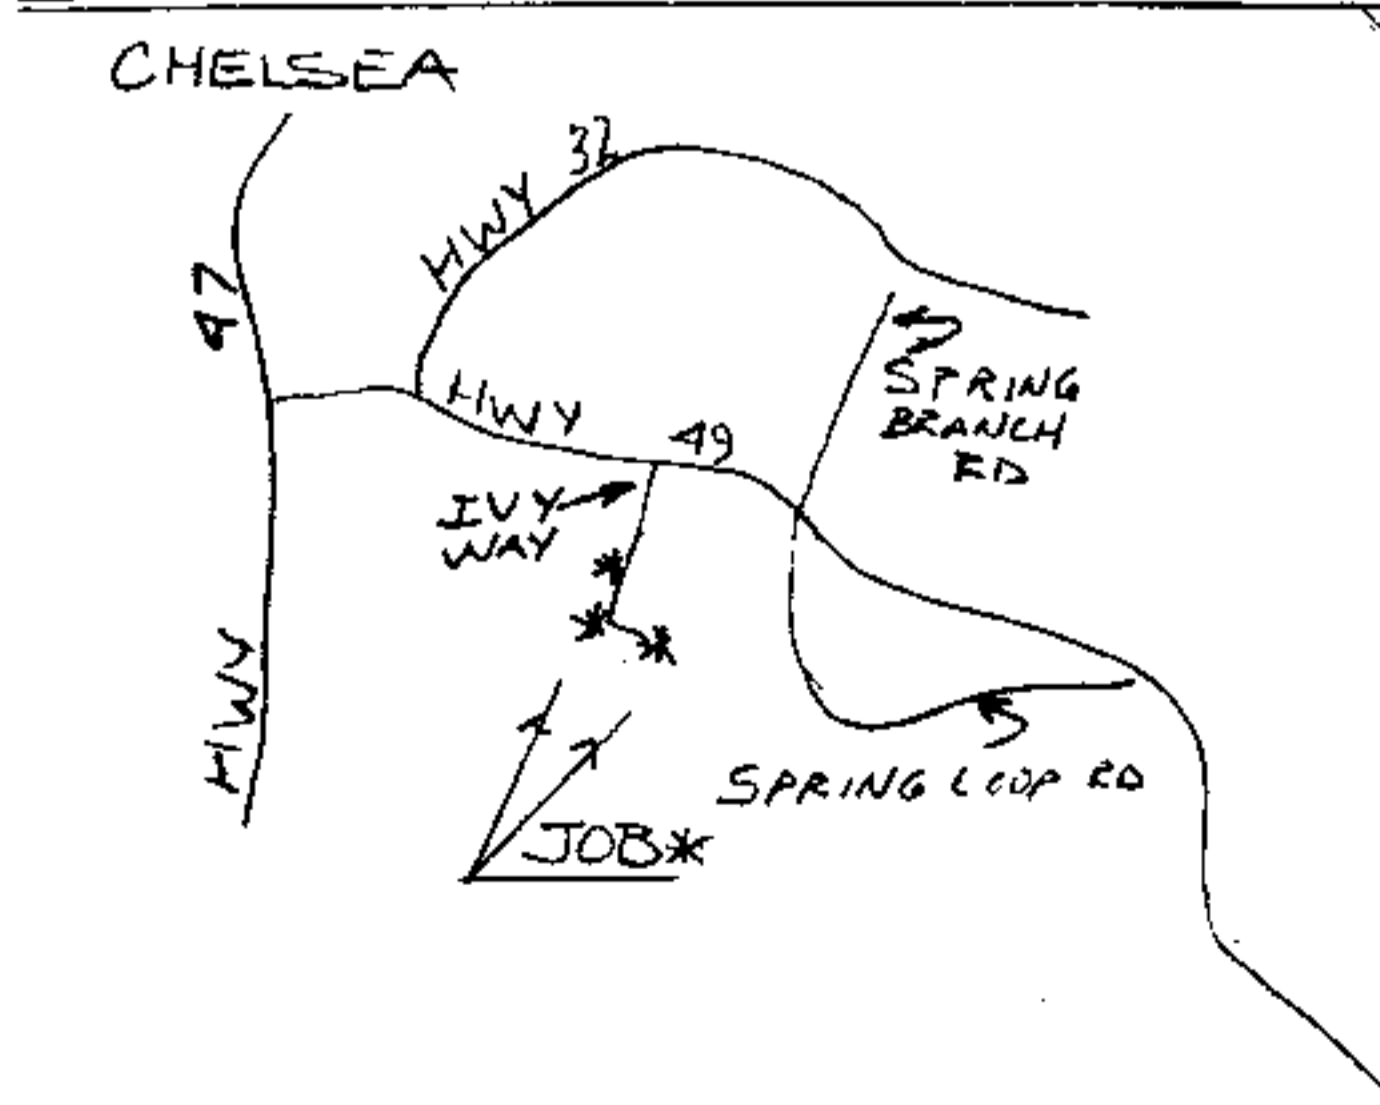 CHELSEA
HWY 32
HWY 47
HWY 49
SPRING
BRANCH
RD
IVY
WAY
*
*
*
SPRING LOOP RD
JOB*